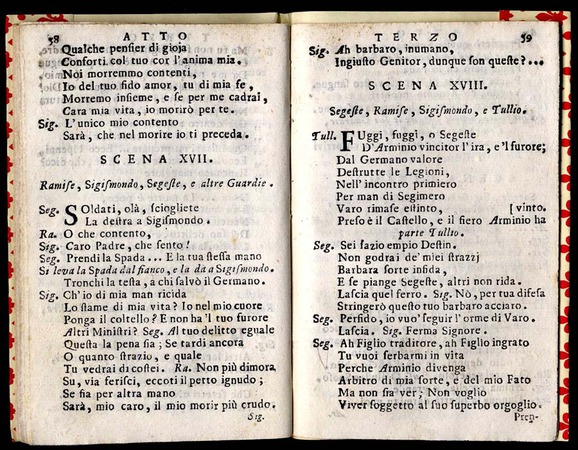 58 ATTO
Qualche pensier di gioja
Conforti col tuo cor l'anima mia.
Noi morremmo contenti,
Io del tuo fido amor, tu di mia fe,
Morremo insieme, e se per me cadrai,
Cara mia vita, io morirò per te.
Sig. L'unico mio contento
Sarà, che nel morire io ti preceda.
SCENA XVII.
Ramise, Sigismondo, Segeste, e altre Guardie.
Seg. Soldati, olà, sciogliete
La destra a Sigismondo.
Ra. O che contento,
Sig. Caro Padre, che sento!
Seg. Prendi la Spada... E la tua stessa mano
Si leva la Spada dal fianco, e la dà a Sigismondo.
Tronchi la testa, a chi salvò il Germano.
Sig. Ch'io di mia man ricida
Lo stame di mia vita? Io nel mio cuore
Ponga il coltello? E non ha'l tuo furore
Altri Ministri? Seg. Al tuo delitto eguale
Questa la pena sia; Se tardi ancora
O quanto strazio, e quale
Tu vedrai di costei. Ra. Non più dimora
Su, via ferisci, eccoti il petto ignudo;
Se fia per altra mano
Sarà, mio caro, il mio morir più crudo.
Sig.
TERZO 59
Sig. Ah barbaro, inumano,
Ingiusto Genitor, dunque son queste?...
SCENA XVIII.
Segeste, Ramise, Sigismondo, e Tullio.
Tull. Fuggi, fuggi, o Segeste
D'Arminio vincitor l'ira, e'l furore;
Dal Germano valore
Destrutte le Legioni,
Nell'incontro primiero
Per man di Segimero
Varo rimase estinto, [vinto.
Preso è il Castello, e il fiero Arminio ha
parte Tullio.
Seg. Sei sazio empio Destin.
Non godrai de' miei strazzj
Barbara sorte infida,
E se piange Segeste, altri non rida.
Lascia quel ferro. Sig. Nò, per tua difesa
Stringerò questo tuo barbaro acciaro.
Seg. Perfido, io vuo' seguir l'orme di Varo.
Lascia. Sig. Ferma Signore.
Seg. Ah Figlio traditore, ah Figlio ingrato
Tu vuoi serbarmi in vita
Perche Arminio divenga
Arbitro di mia sorte, e del mio Fato
Ma non sia ver; Non voglio
Viver soggetto al suo superbo orgoglio.
Pren-